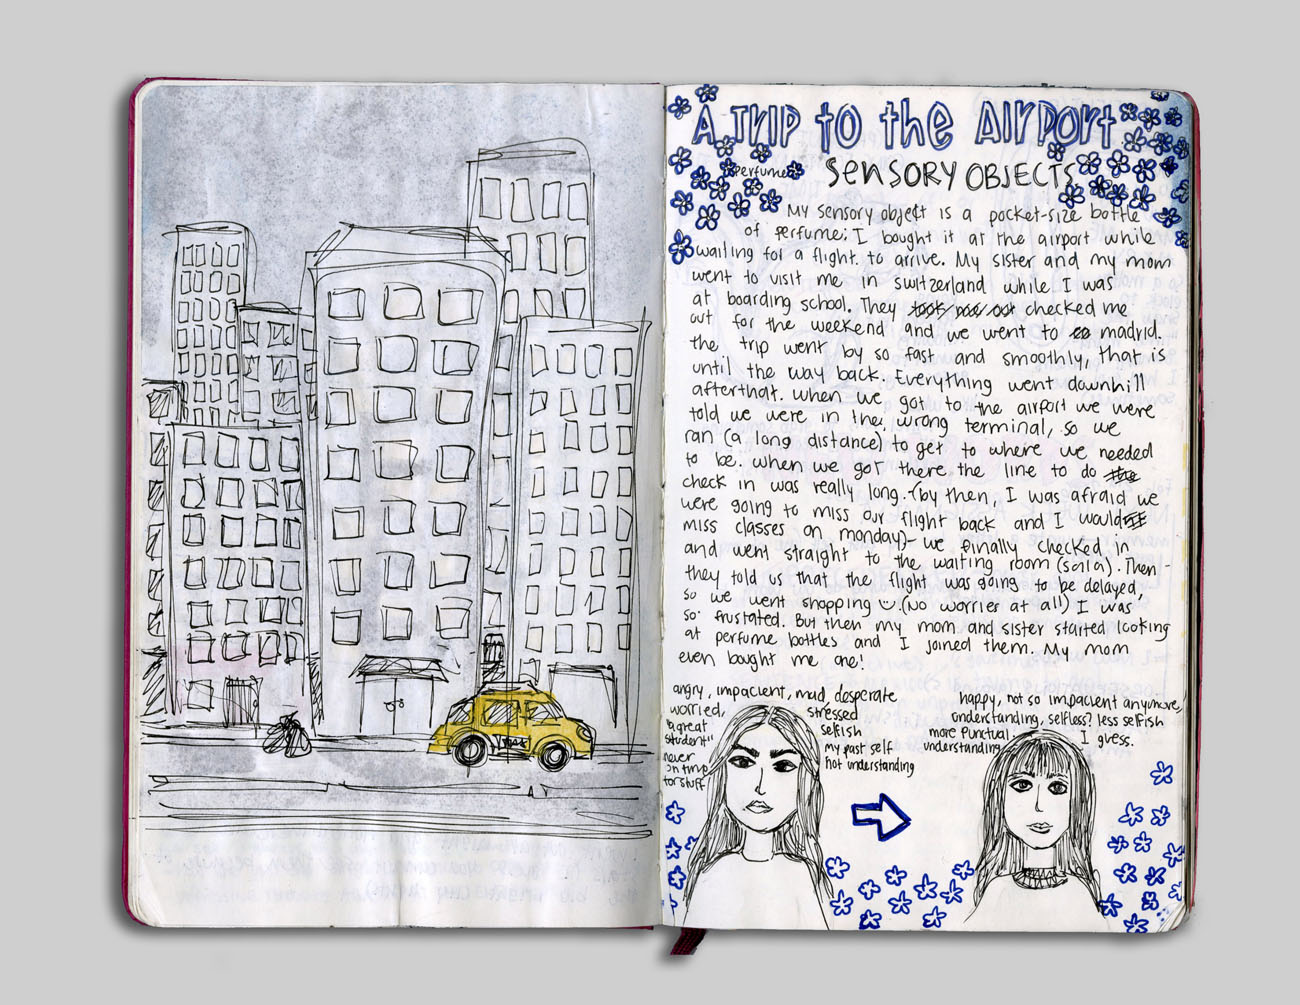 A TRIP to the AIRPORT
perfume
SENSORY OBJECTS
My sensory object is a pocket-size bottle
of perfume; I bought it at the airport while
waiting for a flight. to arrive. My sister and my mom
went to visit me in switzerland while I was
at boarding school. They took me out checked me
out for the weekend and we went to madrid.
the trip went by so fast and smoothly, that is
until the way back. Everything went downhill
afterthat. when we got to the airport we were
told we were in the wrong terminal, so we
ran (a long distance) to get to where we needed
to be. when we got there the line to do the
check in was really long. (by then, I was afraid we
were going to miss our flight back and I would
miss classes on monday)- we finally checked in
and went straight to the waiting room (sala). Then -
they told us that the flight was going to be delayed,
so we went shopping (No worrier at all) I was
so frustated. But then my mom and sister started looking
at perfume bottles and I joined them. My mom
even bought me one!
angry, impacient, mad, desperate
worried, stressed
"a great selfish
student" my past self
never not understanding
on time
for stuff
happy, not so impacient anymore,
understanding, selfless? less selfish
more punctual I guess.
understanding